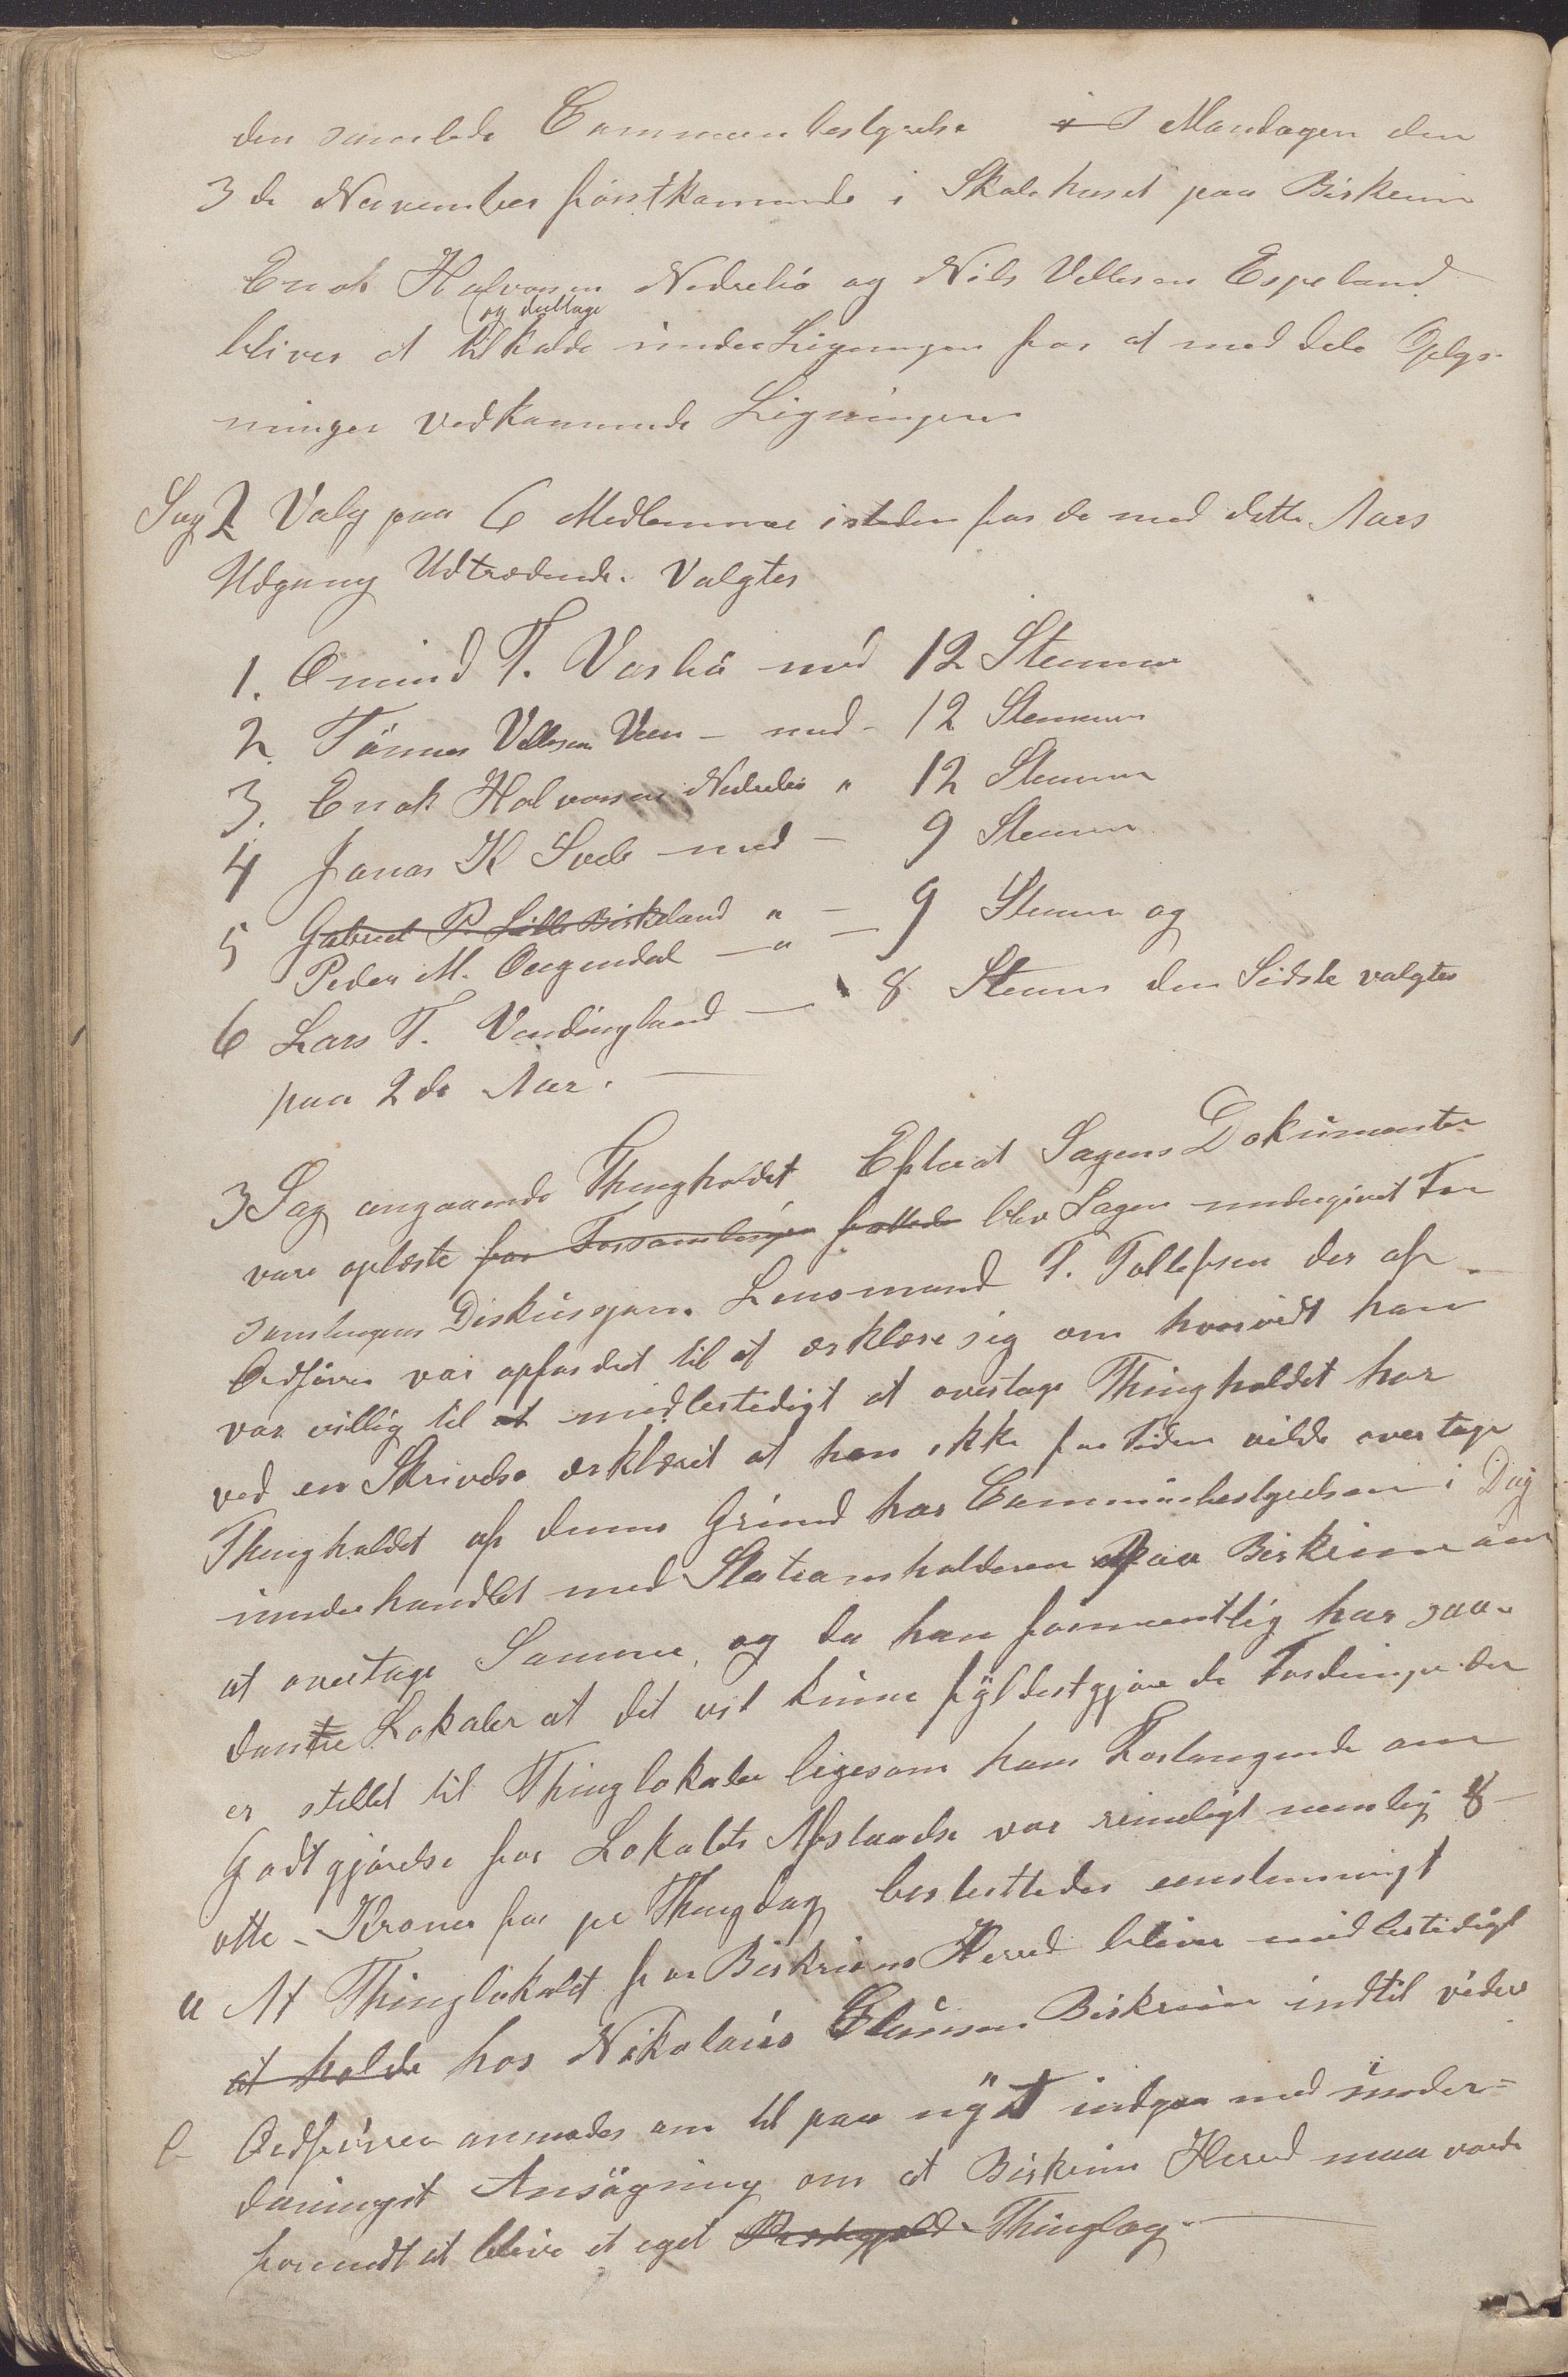 den samlede Communbestyrelse i Mandagen den
3de November förstkommende i Skolehuset paa Birkrim
Enok Halvorsen Nedrebö og Nils Villesen Espeland
og deeltage
bliver at tilkalde under Ligningen for at meddele Oplys-
ninger vedkommende Ligningen
Sag 2 Valg paa 6 Medlemmer isteden for de med dette Aars
Udgang Udtrædende. Valgtes
1. Omund T. Vasbö med 12 Stemmer
2. Tönnes Villesen Veen - med - 12 Stemmer
3. Enok Halvorsen Nedrebö " 12 Stemmer
4 Jonas K Svele med - 9 Stemmer
5 Gabriel P. Lille Birkeland " - 9 Stemmer og
Peder M. Ougendal - " -
6 Lars T. Vandingland - 8 Stemmer den Sidste valgtes
paa 2de Aar.
3 Sag angaaende Thingholdet Efterat Sagens Dokumenter
vare oplæste for Forsamlingen fattede blev Sagen undergivet For
samlingens Diskusjon. Lensmand T. Tollefsen der af
Ordförer var opfordret til at erklære sig om hvorvidt han
var villig til at midlertidigt at overtage Thingholdet har
ved en Skrivelse erklæret at han ikke for Tiden vilde overtage
Thingholdet af denne Grund har Communbestyrelsen i Dag
underhandlet med Stationsholderen paa Birkrim om
at overtage Samme, og da han formentlig har saa-
danne Lokaler at det vil kunne fyldestgjöre de Fordringer der
er stillet til Thinglokaler ligesom hans Forlangende om
Godtgjörelse for Lokalets Afstaaelse var rimeligt nemlig 8 -
otte - Kroner for pr Thingdag besluttedes eenstemmigt
a At Thinglokalet for Birkrims Herred bliver midlertidigt
at holde hos Nikolaus Clausen Birkrim indtil videre
b Ordförer anmodes om til paa nyt indgaa med under=
danigst Ansögning om at Birkrim Herred maa vorde
forundt at blive et eget Præstegjeld Thinglag.